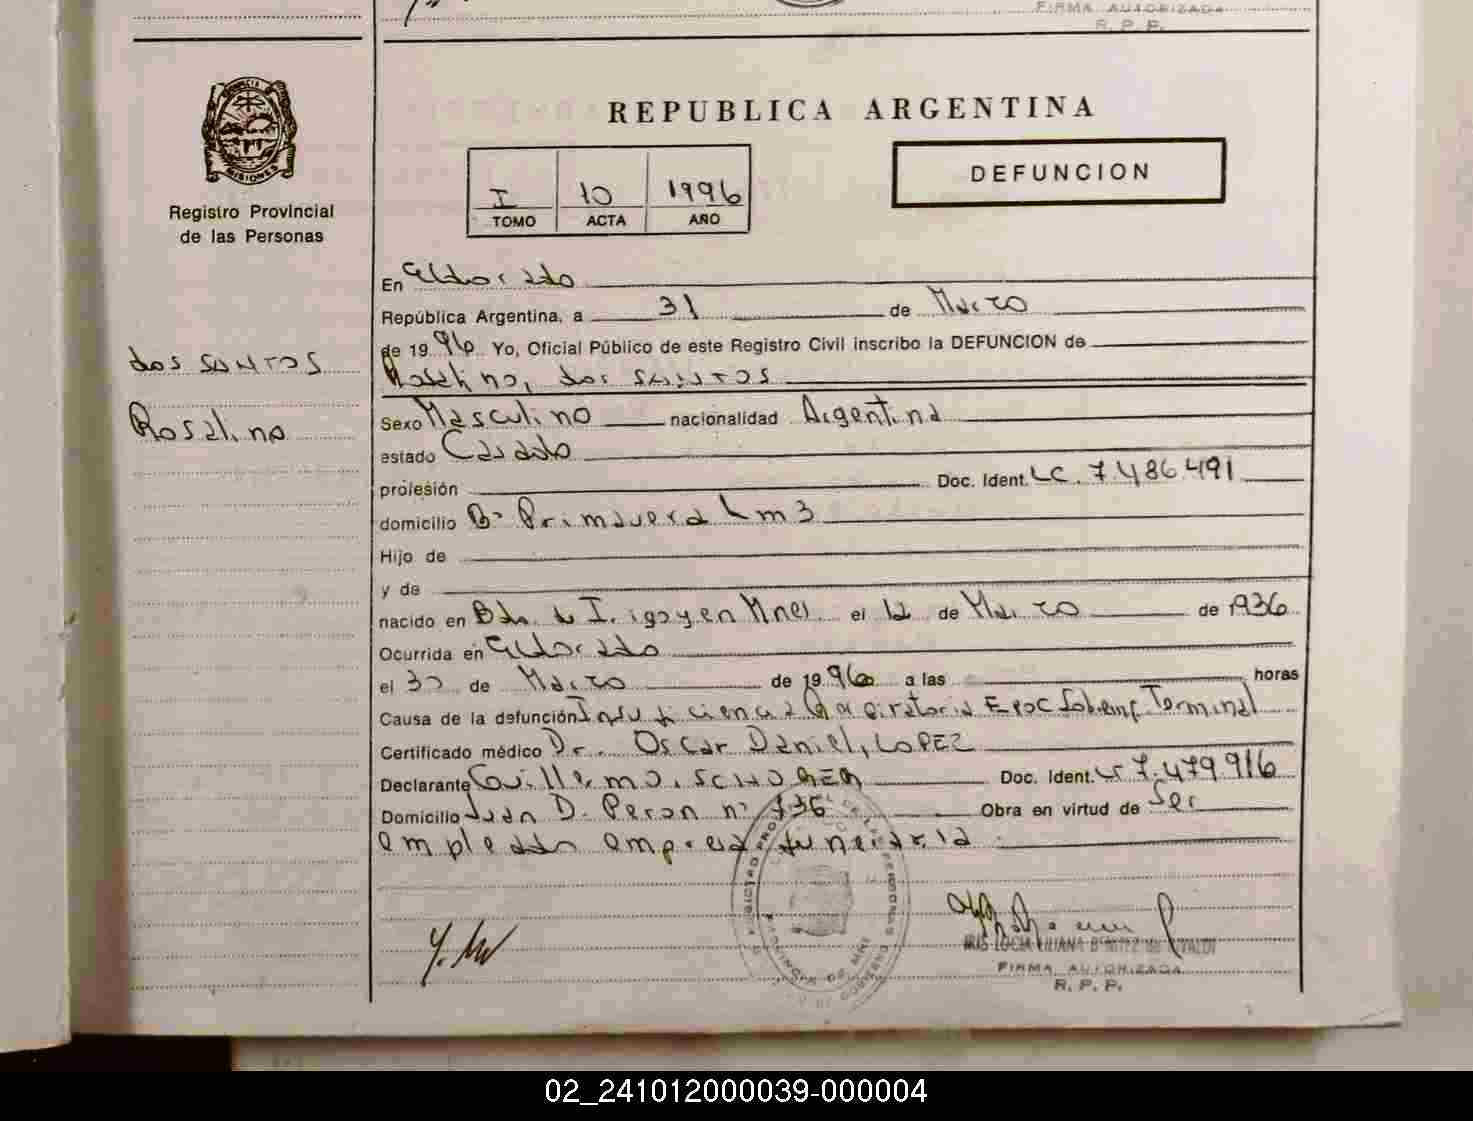 FIRMA AUTORIZADA
R. P. P.
PROVINCIA DE
MISIONES
Registro Provincial
de las Personas
dos santos
Rosalino
REPUBLICA ARGENTINA
I 10 1996
TOMO ACTA AÑO
DEFUNCION
En Eldorado
República Argentina, a 31 de Marzo
de 1996 Yo, Oficial Público de este Registro Civil inscribo la DEFUNCION de
Rosalino, dos santos
Sexo Masculino nacionalidad Argentina
estado Casado
profesión Doc. Ident. LC. 7.486.491
domicilio Bº Primavera km 3
Hijo de
y de
nacido en Bdo. de I. igoyen Mnes el 12 de Marzo de 1936
Ocurrida en Eldorado
el 30 de Marzo de 1996 a las horas
Causa de la defunción Insuficiencia Respiratoria Epoc Terminal
Certificado médico Dr. Oscar Daniel, LOPEZ
Declarante Guillermo, Doc. Ident. 7.479.916
Domicilio Juan D. Peron nº 736 Obra en virtud de Ser
empleado empresa funeraria
IRIS LUCIA LILIANA BENITEZ de
FIRMA AUTORIZADA
R. P. P.
02_241012000039-000004